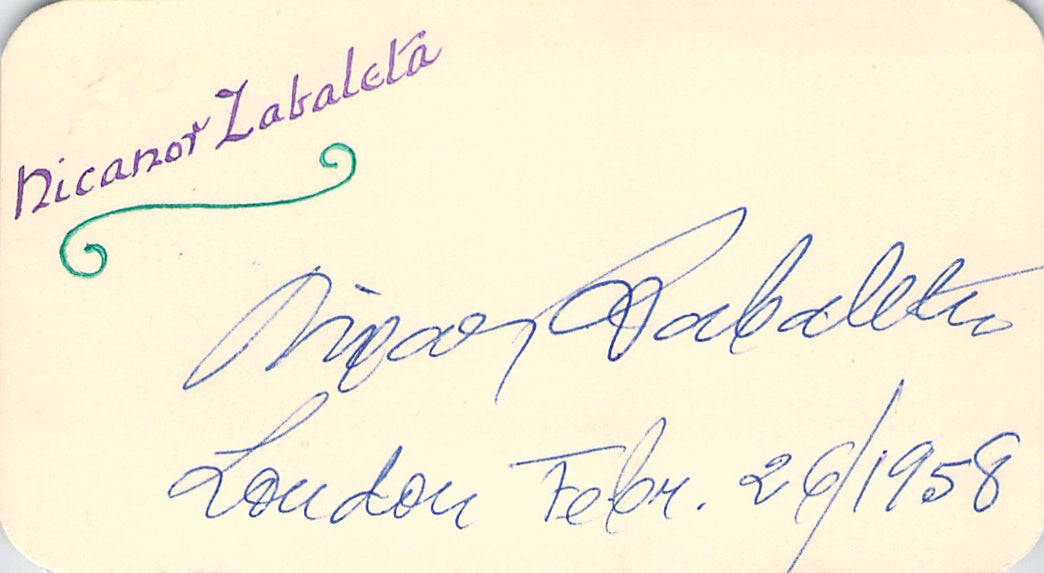 Nicanor Zabaleta
Nicanor Zabaleta
London Febr. 26/1958